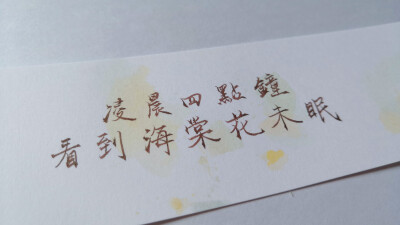 凌晨四點鐘
看到海棠花未眠